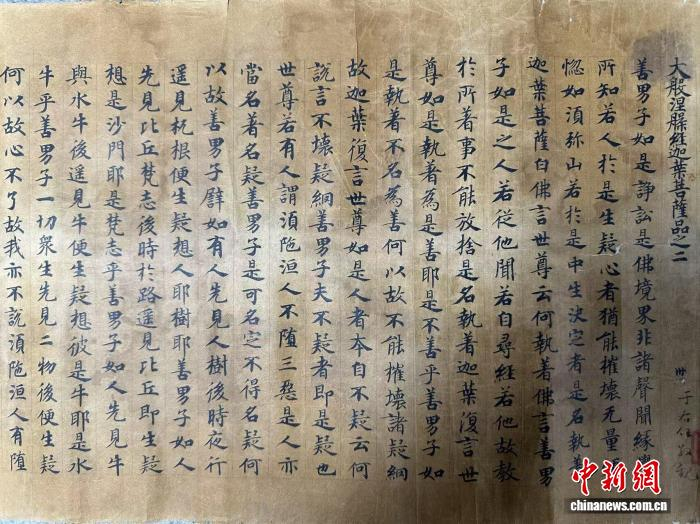 大般涅槃經迦葉菩薩品之二
善男子如是諍訟是佛境界非諸聲聞緣
所知若人於是生疑心者猶能摧壞无量
惚如須弥山若於是中生决定者是名執著
迦葉菩薩白佛言世尊云何執著佛言善男
子如是之人若從他聞若自尋經若他故教
於所著事不能放捨是名執著迦葉復言世
尊如是執著為是善耶是不善乎善男子如
是執著不名為善何以故不能摧壞諸疑網
故迦葉復言世尊如是人者本自不疑云何
說言不壞疑網善男子夫不疑者即是疑也
世尊若有人謂湏陁洹人不墮三惡是人亦
當名著名疑善男子是可名定不得名疑何
以故善男子譬如有人先見人樹後時夜行
遥見杌根便生疑想人耶樹耶善男子如人
先見比丘梵志後時於路遥見比丘即生疑
想是沙門耶是梵志乎善男子如人先見牛
與水牛後遥見牛便生疑想彼是牛耶是水
牛乎善男子一切衆生先見二物後便生疑
何以故心不了故我亦不說湏陁洹人有墮
中新网
chinanews.com